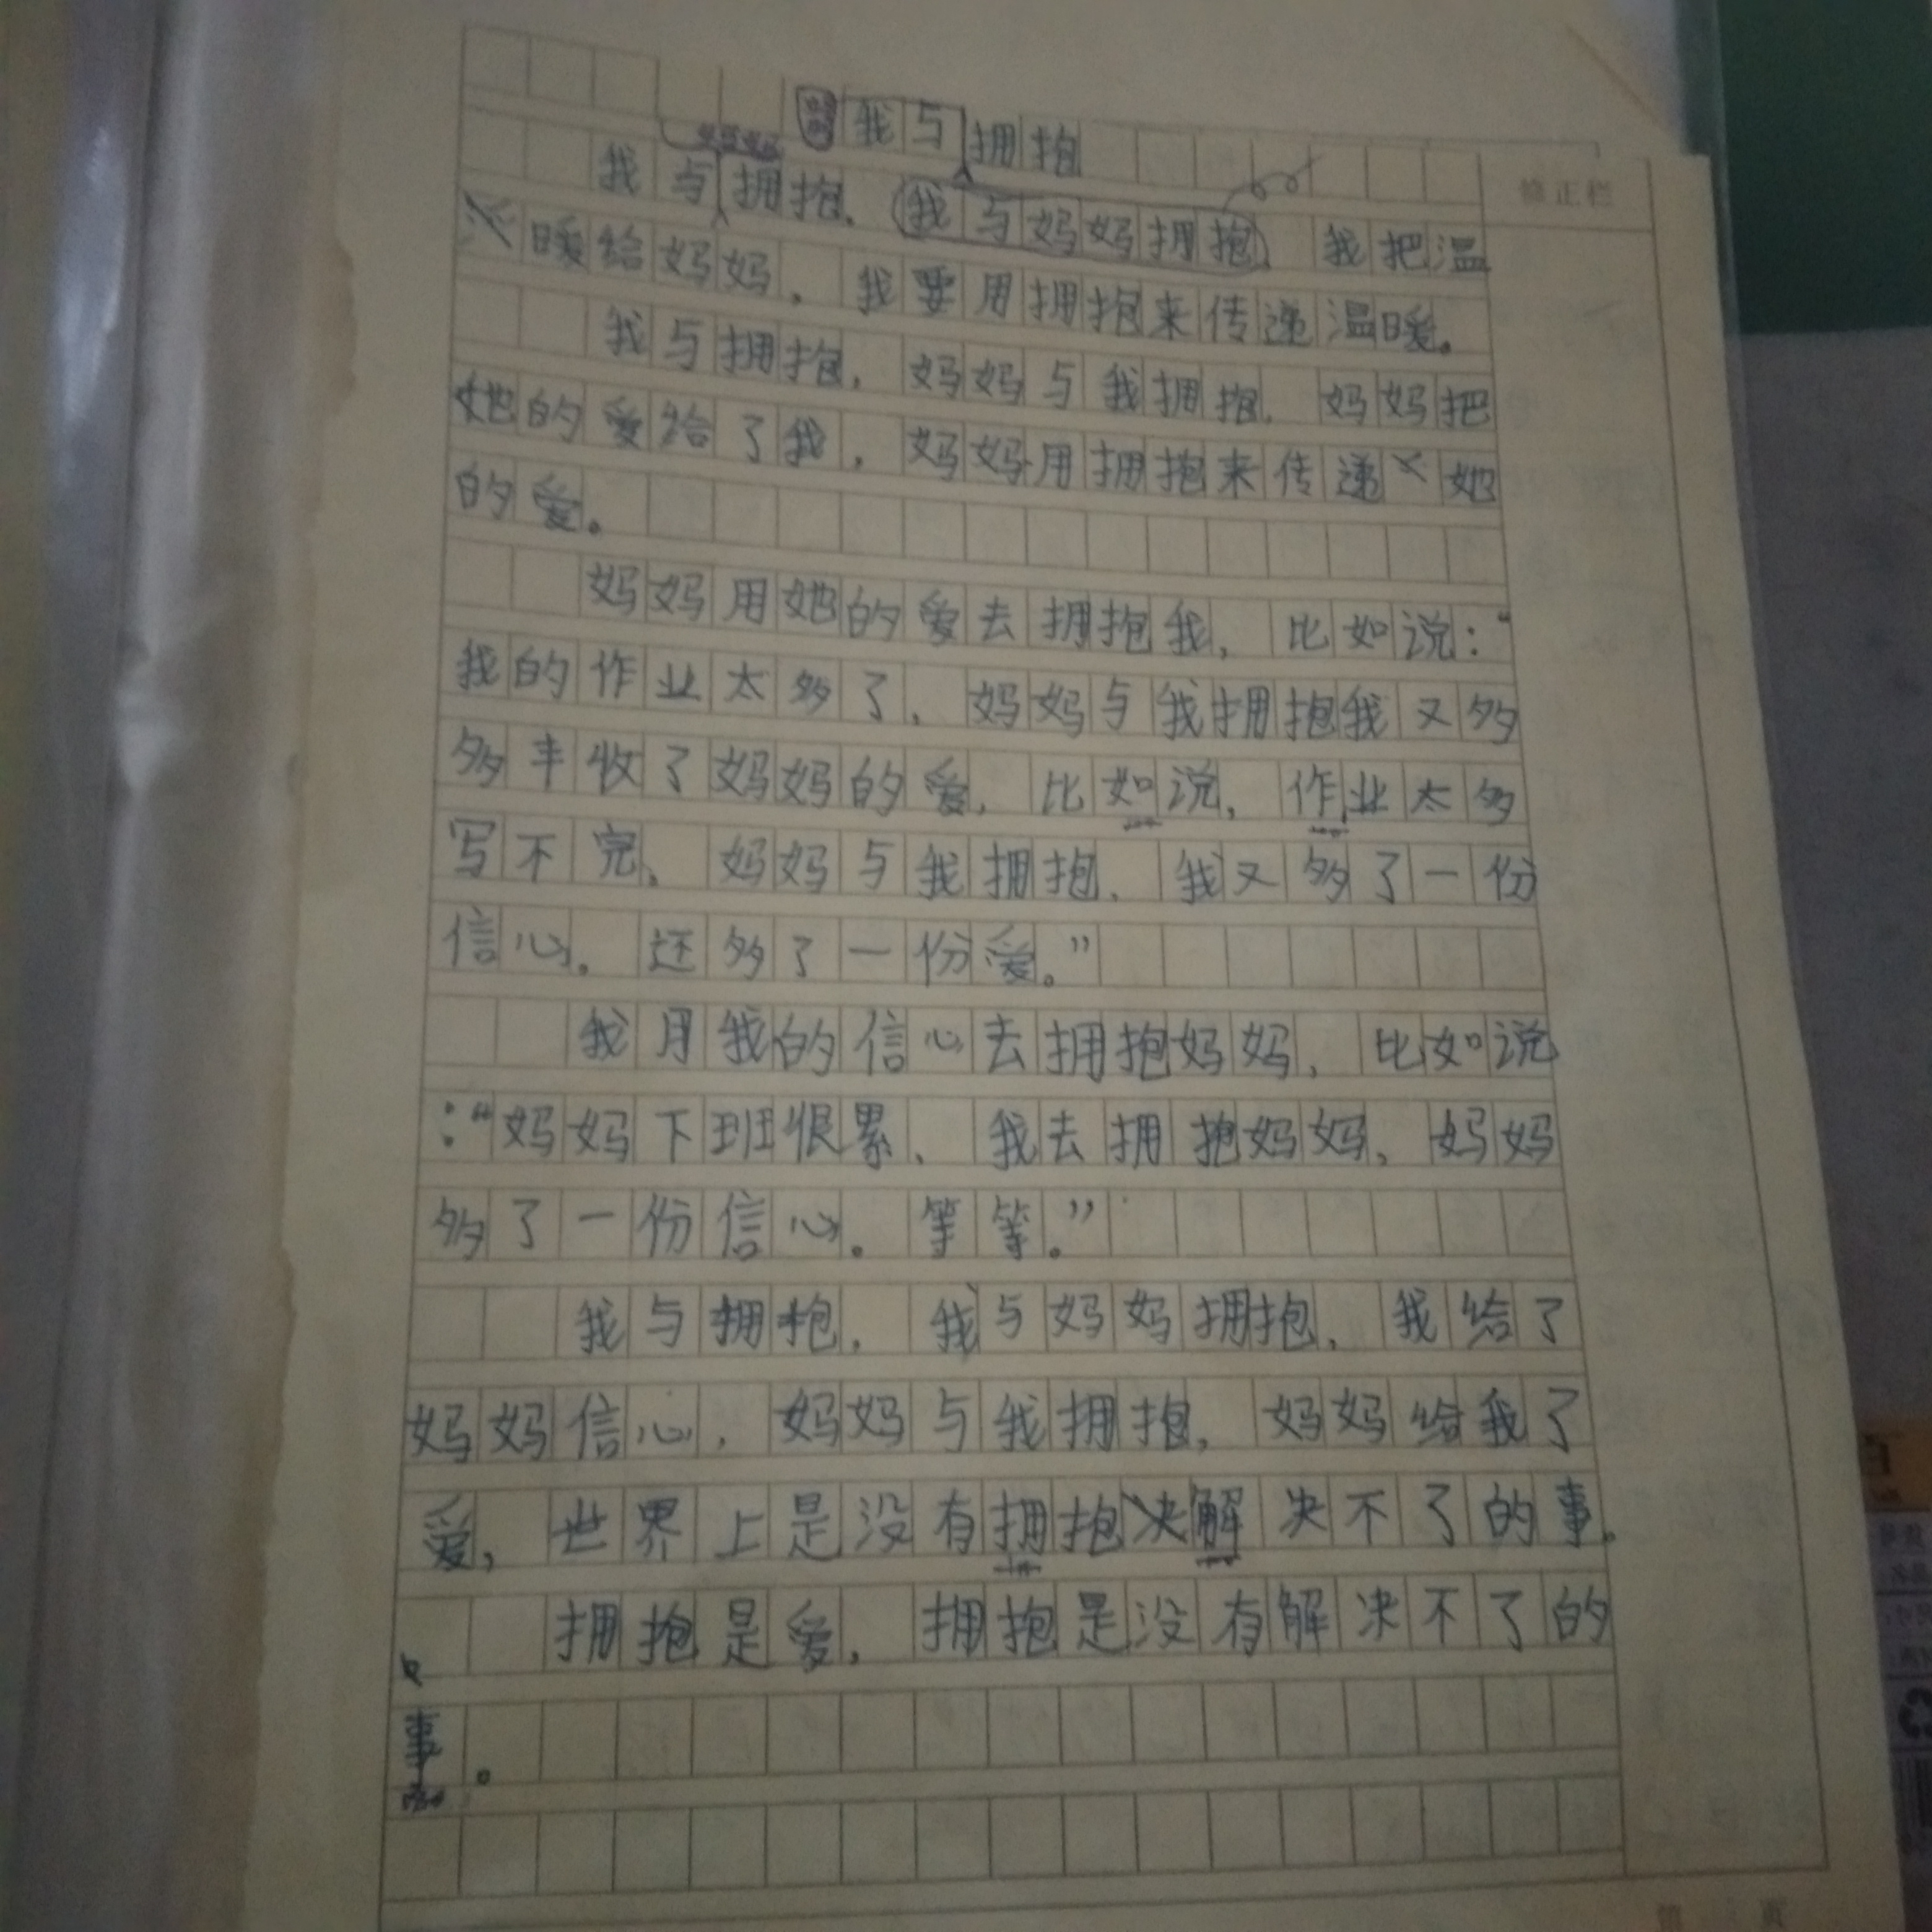 我与拥抱
修正栏
我与拥抱,我与妈妈拥抱,我把温
暖给妈妈,我要用拥抱来传递温暖。
我与拥抱,妈妈与我拥抱,妈妈把
她的爱给了我,妈妈用拥抱来传递她
的爱。
妈妈用她的爱去拥抱我,比如说:“
我的作业太多了,妈妈与我拥抱我又多
多丰收了妈妈的爱,比如说,作业太多
写不完,妈妈与我拥抱,我又多了一份
信心,还多了一份爱。”
我用我的信心去拥抱妈妈,比如说
:“妈妈下班很累,我去拥抱妈妈,妈妈
多了一份信心。等等。”
我与拥抱,我与妈妈拥抱,我给了
妈妈信心,妈妈与我拥抱,妈妈给我了
爱,世界上是没有拥抱决解决不了的事。
拥抱是爱,拥抱是没有解决不了的
事。
第 页